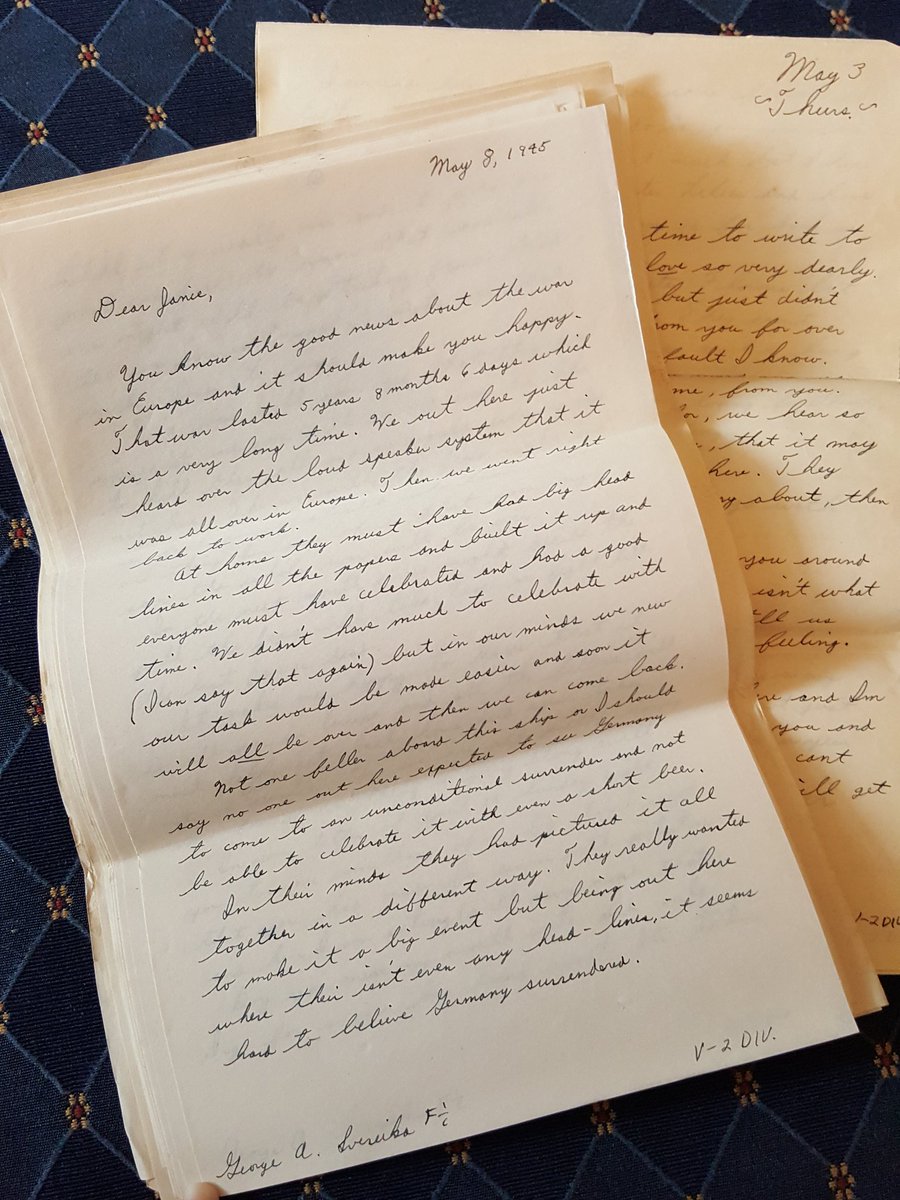 May 8, 1945
Dear Janie,
You know the good news about the war
in Europe and it should make you happy.
That war lasted 5 years 8 months 6 days which
is a very long time. We out here just
heard over the loud speaker system that it
was all over in Europe. Then we went right
back to work.
At home they must have had big head
lines in all the papers and built it up and
everyone must have celebrated and had a good
time. We didn't have much to celebrate with
(I can say that again) but in our minds we new
our task would be made easier and soon it
will all be over and then we can come back.
Not one feller aboard this ship or I should
say no one out here expected to see Germany
to come to an unconditional surrender and not
be able to celebrate it with even a short beer.
In their minds they had pictured it all
together in a different way. They really wanted
to make it a big event but being out here
where their isn't even any head-lines, it seems
hard to believe Germany surrendered.
V-2 DIV.
George A.
May 3
~Thurs.~
time to write to
love so very dearly.
but just didn't
from you for over
fault I know.
me, from you.
we hear so
, that it may
here. They
about, then
you around
isn't what
us
feeling.
and Im
you and
cant
get
-2 DIV